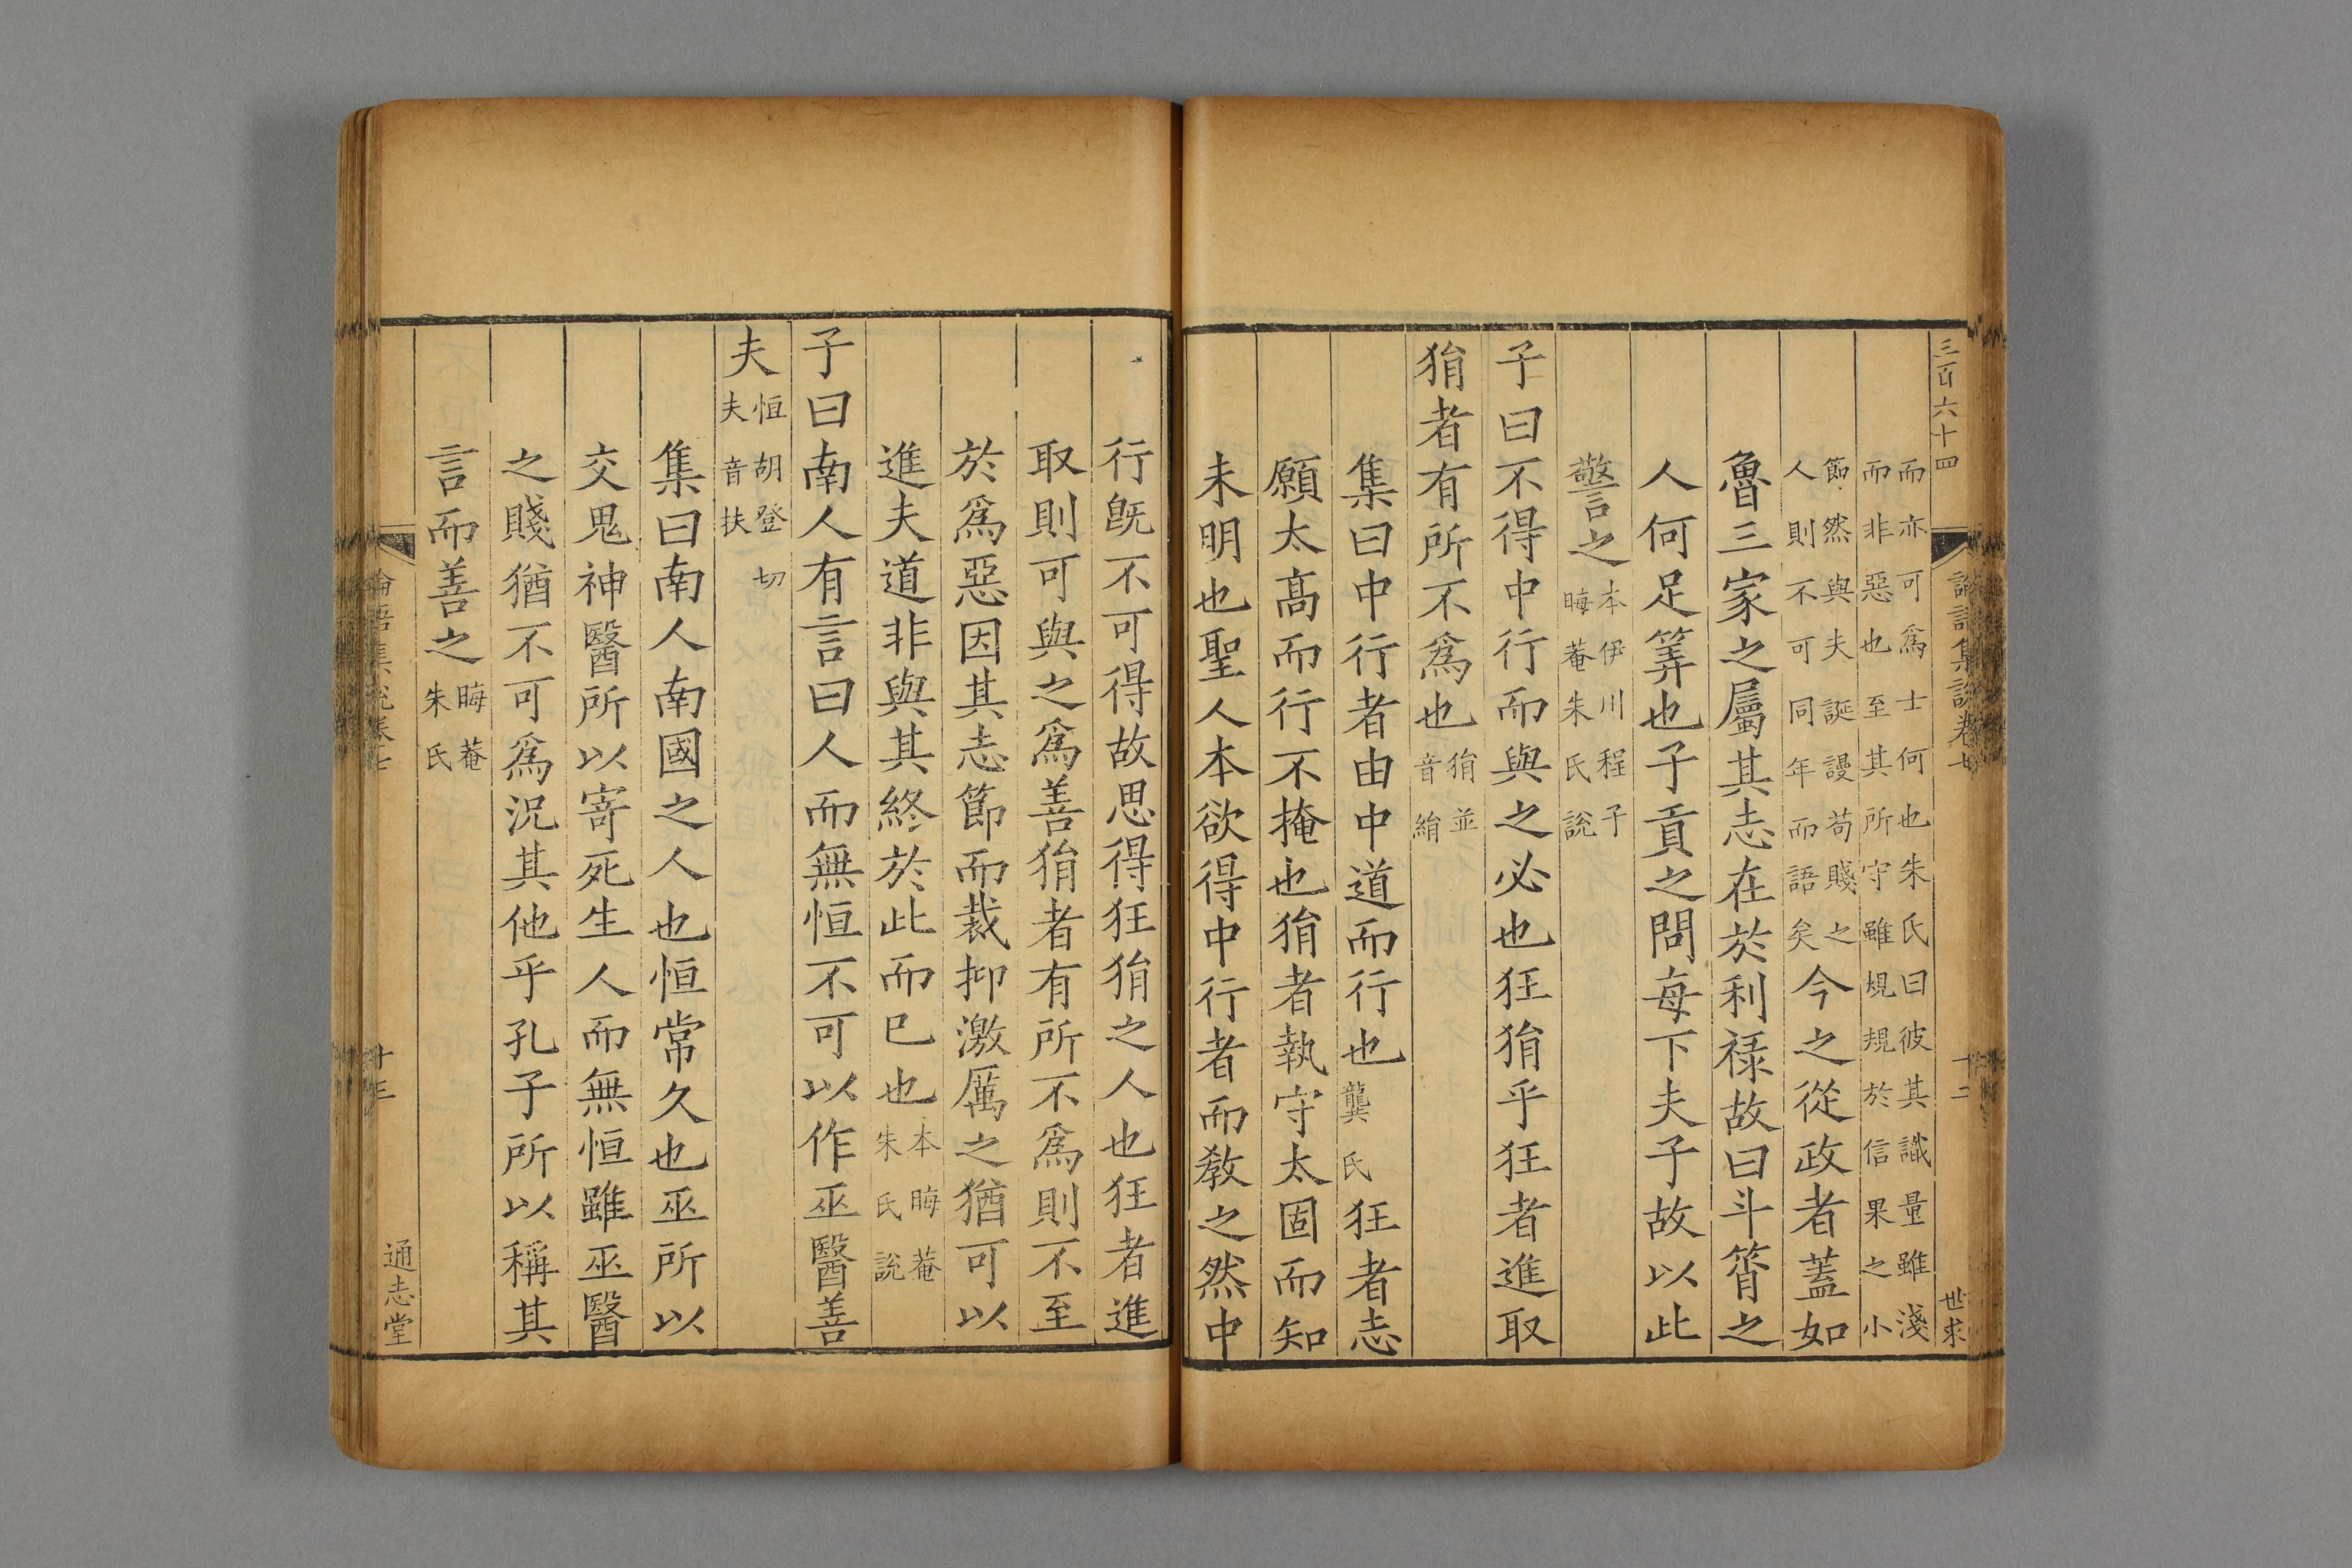 三百六十四
論語集説卷七
十二
世求
而亦可爲士何也朱氏曰彼其識量雖淺
而非惡也至其所守雖規規於信果之小
節然與夫誕謾苟賤之
人則不可同年而語矣今之從政者蓋如
魯三家之屬其志在於利祿故曰斗筲之
人何足筭也子貢之問每下夫子故以此
警之本伊川程子
晦菴朱氏說
子曰不得中行而與之必也狂狷乎狂者進取
狷者有所不爲也狷並
音絹
集曰中行者由中道而行也龔氏狂者志
願太高而行不掩也狷者執守太固而知
未明也聖人本欲得中行者而教之然中
行旣不可得故思得狂狷之人也狂者進
取則可與之爲善狷者有所不爲則不至
於爲惡因其志節而裁抑激厲之猶可以
進夫道非與其終於此而已也本晦菴
朱氏說
子曰南人有言曰人而無恒不可以作巫醫善
夫恒胡登切
夫音扶
集曰南人南國之人也恒常久也巫所以
交鬼神醫所以寄死生人而無恒雖巫醫
之賤猶不可爲況其他乎孔子所以稱其
言而善之晦菴
朱氏
論語集說卷七
通志堂